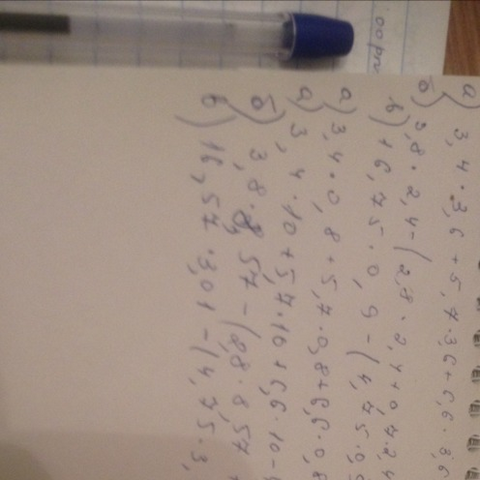 а) 3,4·3,6+5,7·3,6+6,6·3,6
б) 3,8·2,4-(2,8·2,4+0,7·2,4
в) 16,75·0,9-(4,75·0,9
а) 3,4·0,8+5,7·0,8+6,6·0,8
а) 3,4·10+5,7·10+6,6·10-
б) 3,8·8,57-(2,8·8,57+
в) 16,57·3,01-(4,75·3,